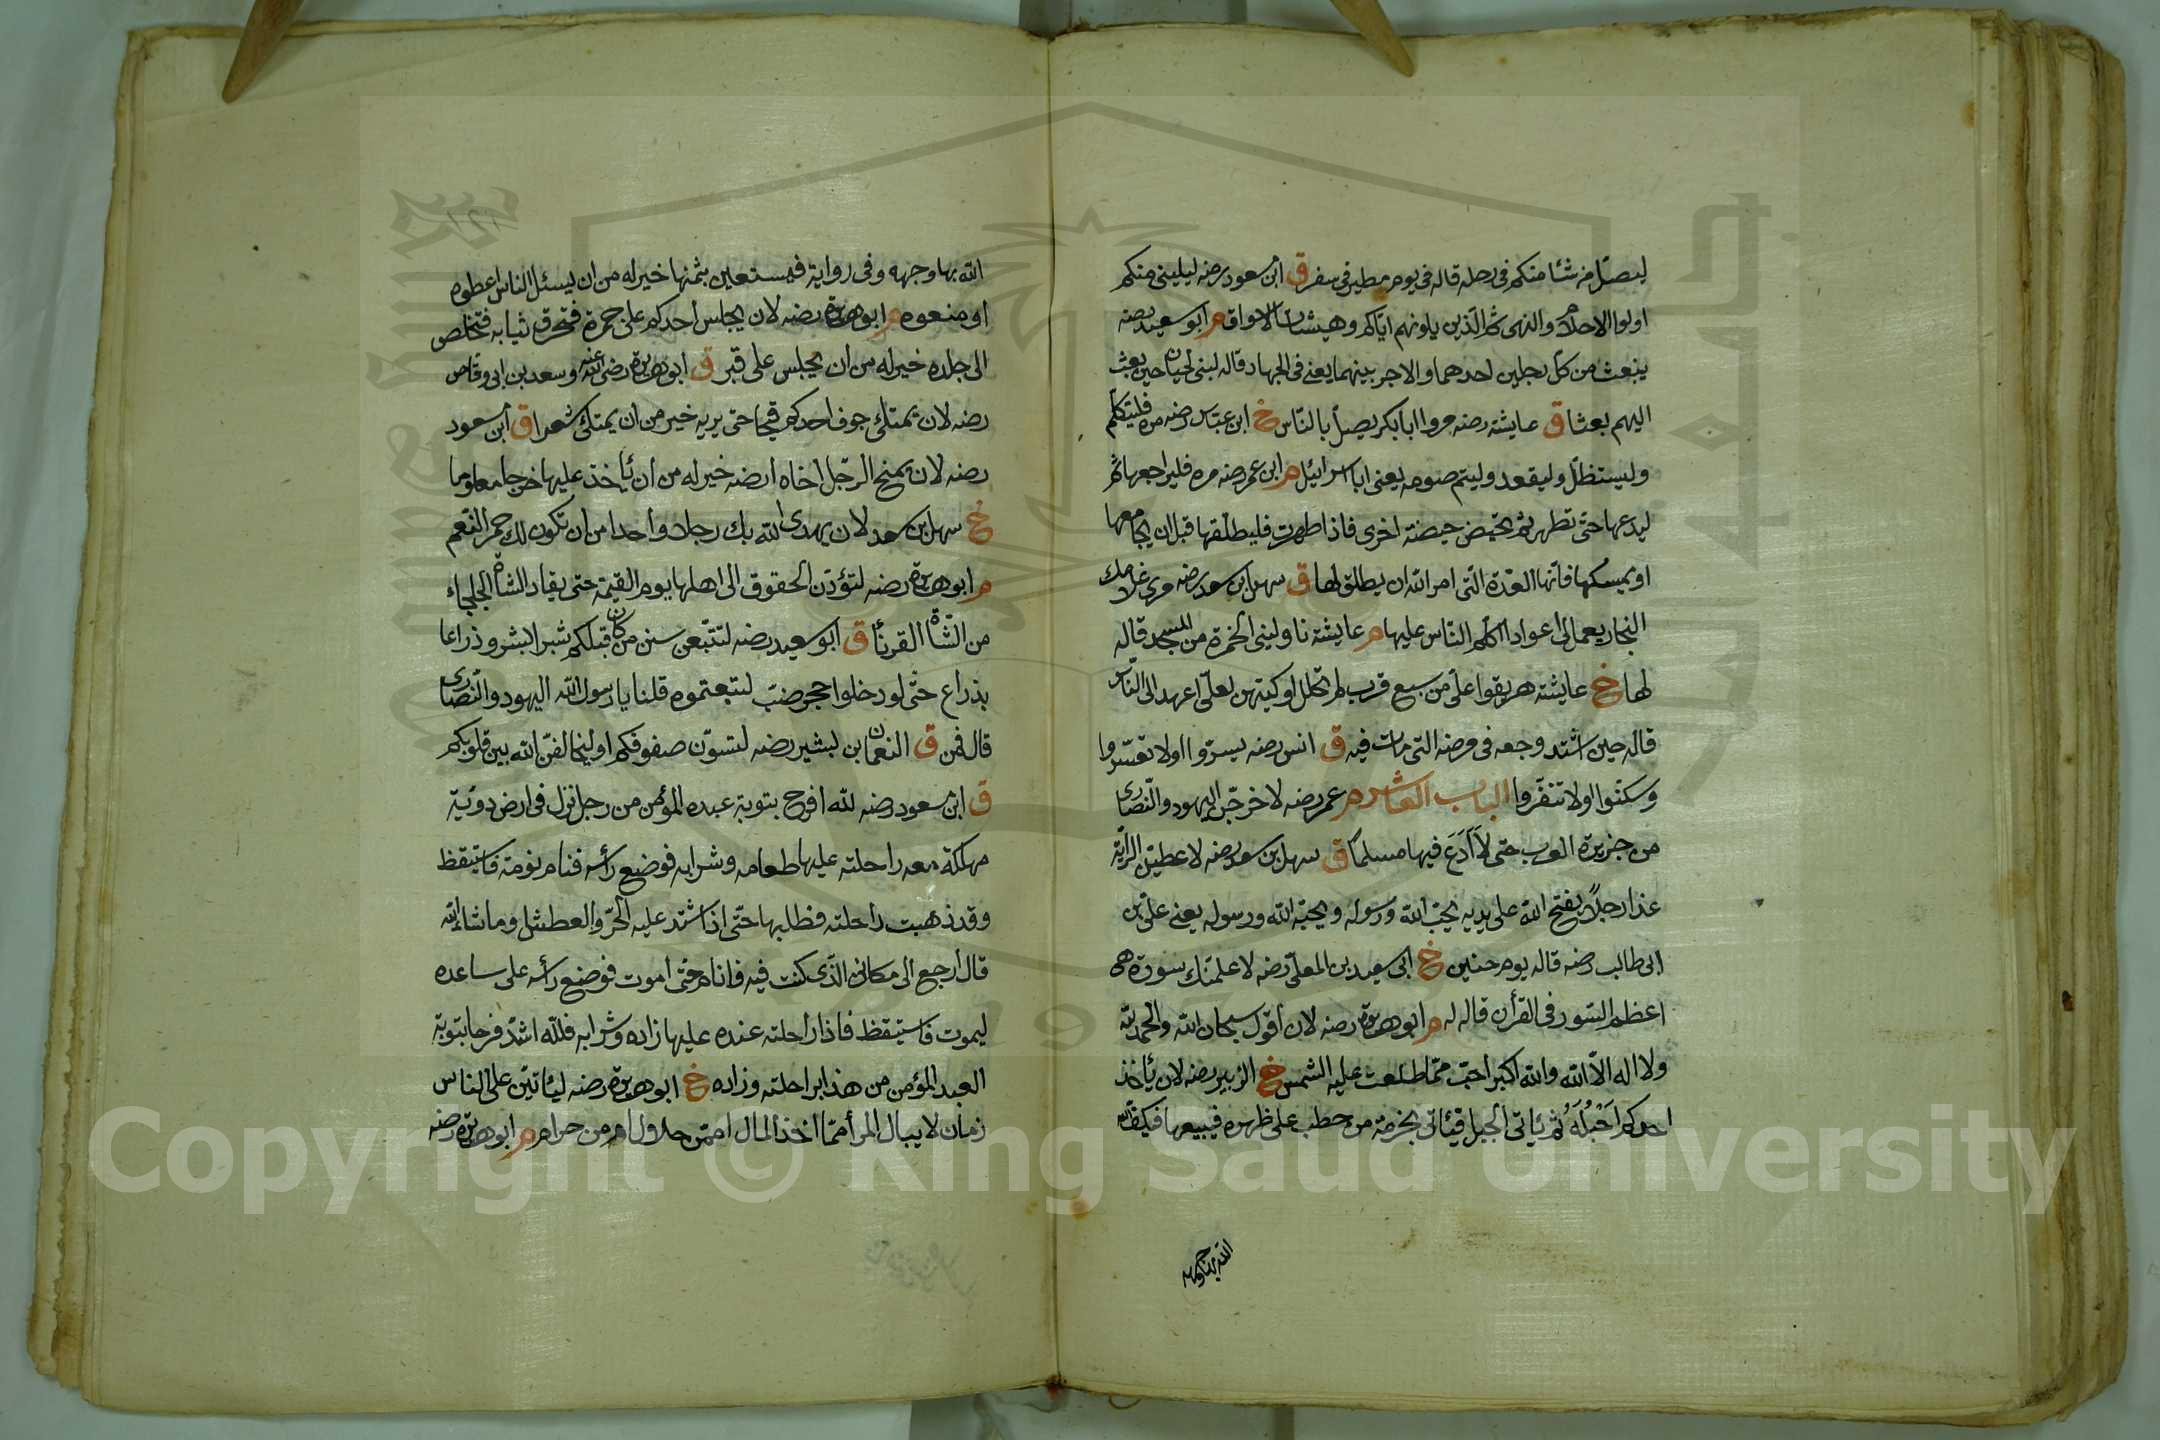 ليصل من شا منكم فى رحله قاله فى يوم مطير فى سفر ق ابن سعود رضه ليلينى منكم
اولوا الاحلام والنهى ثم الذين يلونهم اياكم وهيشات الاسواق م ابو سعيد رضه
ينبعث من كل رجلين احدهما والاجر بينهما يعنى فى الجهاد قاله لبنى لحيان حين بعث
اليهم بعثا ق عايشة رضه مروا ابا بكر يصل بالناس خ ابن عباس رضه مره فليتكلم
وليستظل وليقعد وليتم صومه يعنى ابا اسرائيل م ابن عمر رضه مره فليراجعها ثم
ليدعها حتى تطهر ثم تحيض حيضة اخرى فاذا طهرت فليطلقها قبل ان يجامعها
او يمسكها فانها العدة التى امر الله ان يطلق لها ق سهل ابن سعد رضه مرى غلامك
النجار يعمل لى اعوادا اكلم الناس عليها م عايشة ناولينى الخمرة من المسجد قاله
لها خ عايشة هريقوا على من سبع قرب لم تحلل اوكيتهن لعلى اعهد الى الناس
قاله حين اشتد وجعه فى مرضه التى مات فيه ق انس رضه يسروا ولا تعسروا
وسكنوا ولا تنفروا الباب العاشر م عمر رضه لاخرجن اليهود والنصارى
من جزيرة العرب حتى لا ادع فيها مسلما ق سهل بن سعد رضه لاعطين الراية
غدا رجلا يفتح الله على يديه يحب الله ورسوله ويحبه الله ورسوله يعنى على بن
ابى طالب رضه قاله يوم حنين خ ابى سعيد بن المعلى رضه لاعلمنك سورة هى
اعظم السور فى القرأن قاله له م ابو هريرة رضه لان اقول سبحان الله والحمد لله
ولا اله الا الله والله اكبر احب مما طلعت عليه الشمس خ الزبير رضه لان يأخذ
احدكم احبله ثم يأتى الجبل فيأتى بحزمة من حطب على ظهره فيبيعها فيكف
الله بها وجهه
الله بها وجهه وفى رواية فيستعين بثمنها خير له من ان يسئل الناس اعطوه
او منعوه م ابو هريرة رضه لان يجلس احدكم على جمرة فتحرق ثيابه فتخلص
الى جلده خير له من ان يجلس على قبر ق ابو هريرة رضى الله عنه وسعد بن ابى وقاص
رضه لان تمتلئ جوف احدكم قيحا حتى يريه خير من ان يمتلئ شعرا ق ابن سعود
رضه لان يمنح الرجل اخاه ارضه خير له من ان يأخذ عليها خرجا معلوما
خ سهل بن سعد لان يهدى الله بك رجلا واحدا من ان تكون لك حمر النعم
م ابو هريرة رضه لتؤدن الحقوق الى اهلها يوم القيمة حتى يقاد الشاة الجلجاء
من الشاة القرنأ ق ابو سعيد رضه لتتبعن سنن من كان قبلكم شبرا بشبر وذراعا
بذراع حتى لو دخلوا حجر ضب لتبعتموه قلنا يا رسول الله اليهود والنصارى
قال فمن ق النعمان بن بشير رضه لتسون صفوفكم او ليخالفن الله بين قلوبكم
ق ابن سعود رضه لله افرح بتوبة عبده المؤمن من رجل نزل فى ارض دوية
مهلكة معه راحلته عليها طعامه وشرابه فوضع رأسه فنام نومة فاستيقظ
وقد ذهبت راحلته فطلبها حتى اذا اشتد عليه الحر والعطش وما شاء الله
قال ارجع الى مكانى الذى كنت فيه فانام حتى اموت فوضع رأسه على ساعده
ليموت فاستيقظ فاذا راحلته عنده عليها زاده وشرابه فلله اشد فرحا بتوبة
العبد المؤمن من هذا براحلته وزاده خ ابو هريرة رضه ليأتين على الناس
زمان لا يبال المرأ مما اخذ المال امن حلال ام من حرام م ابو هريرة رضه
Copyright © King Saud University